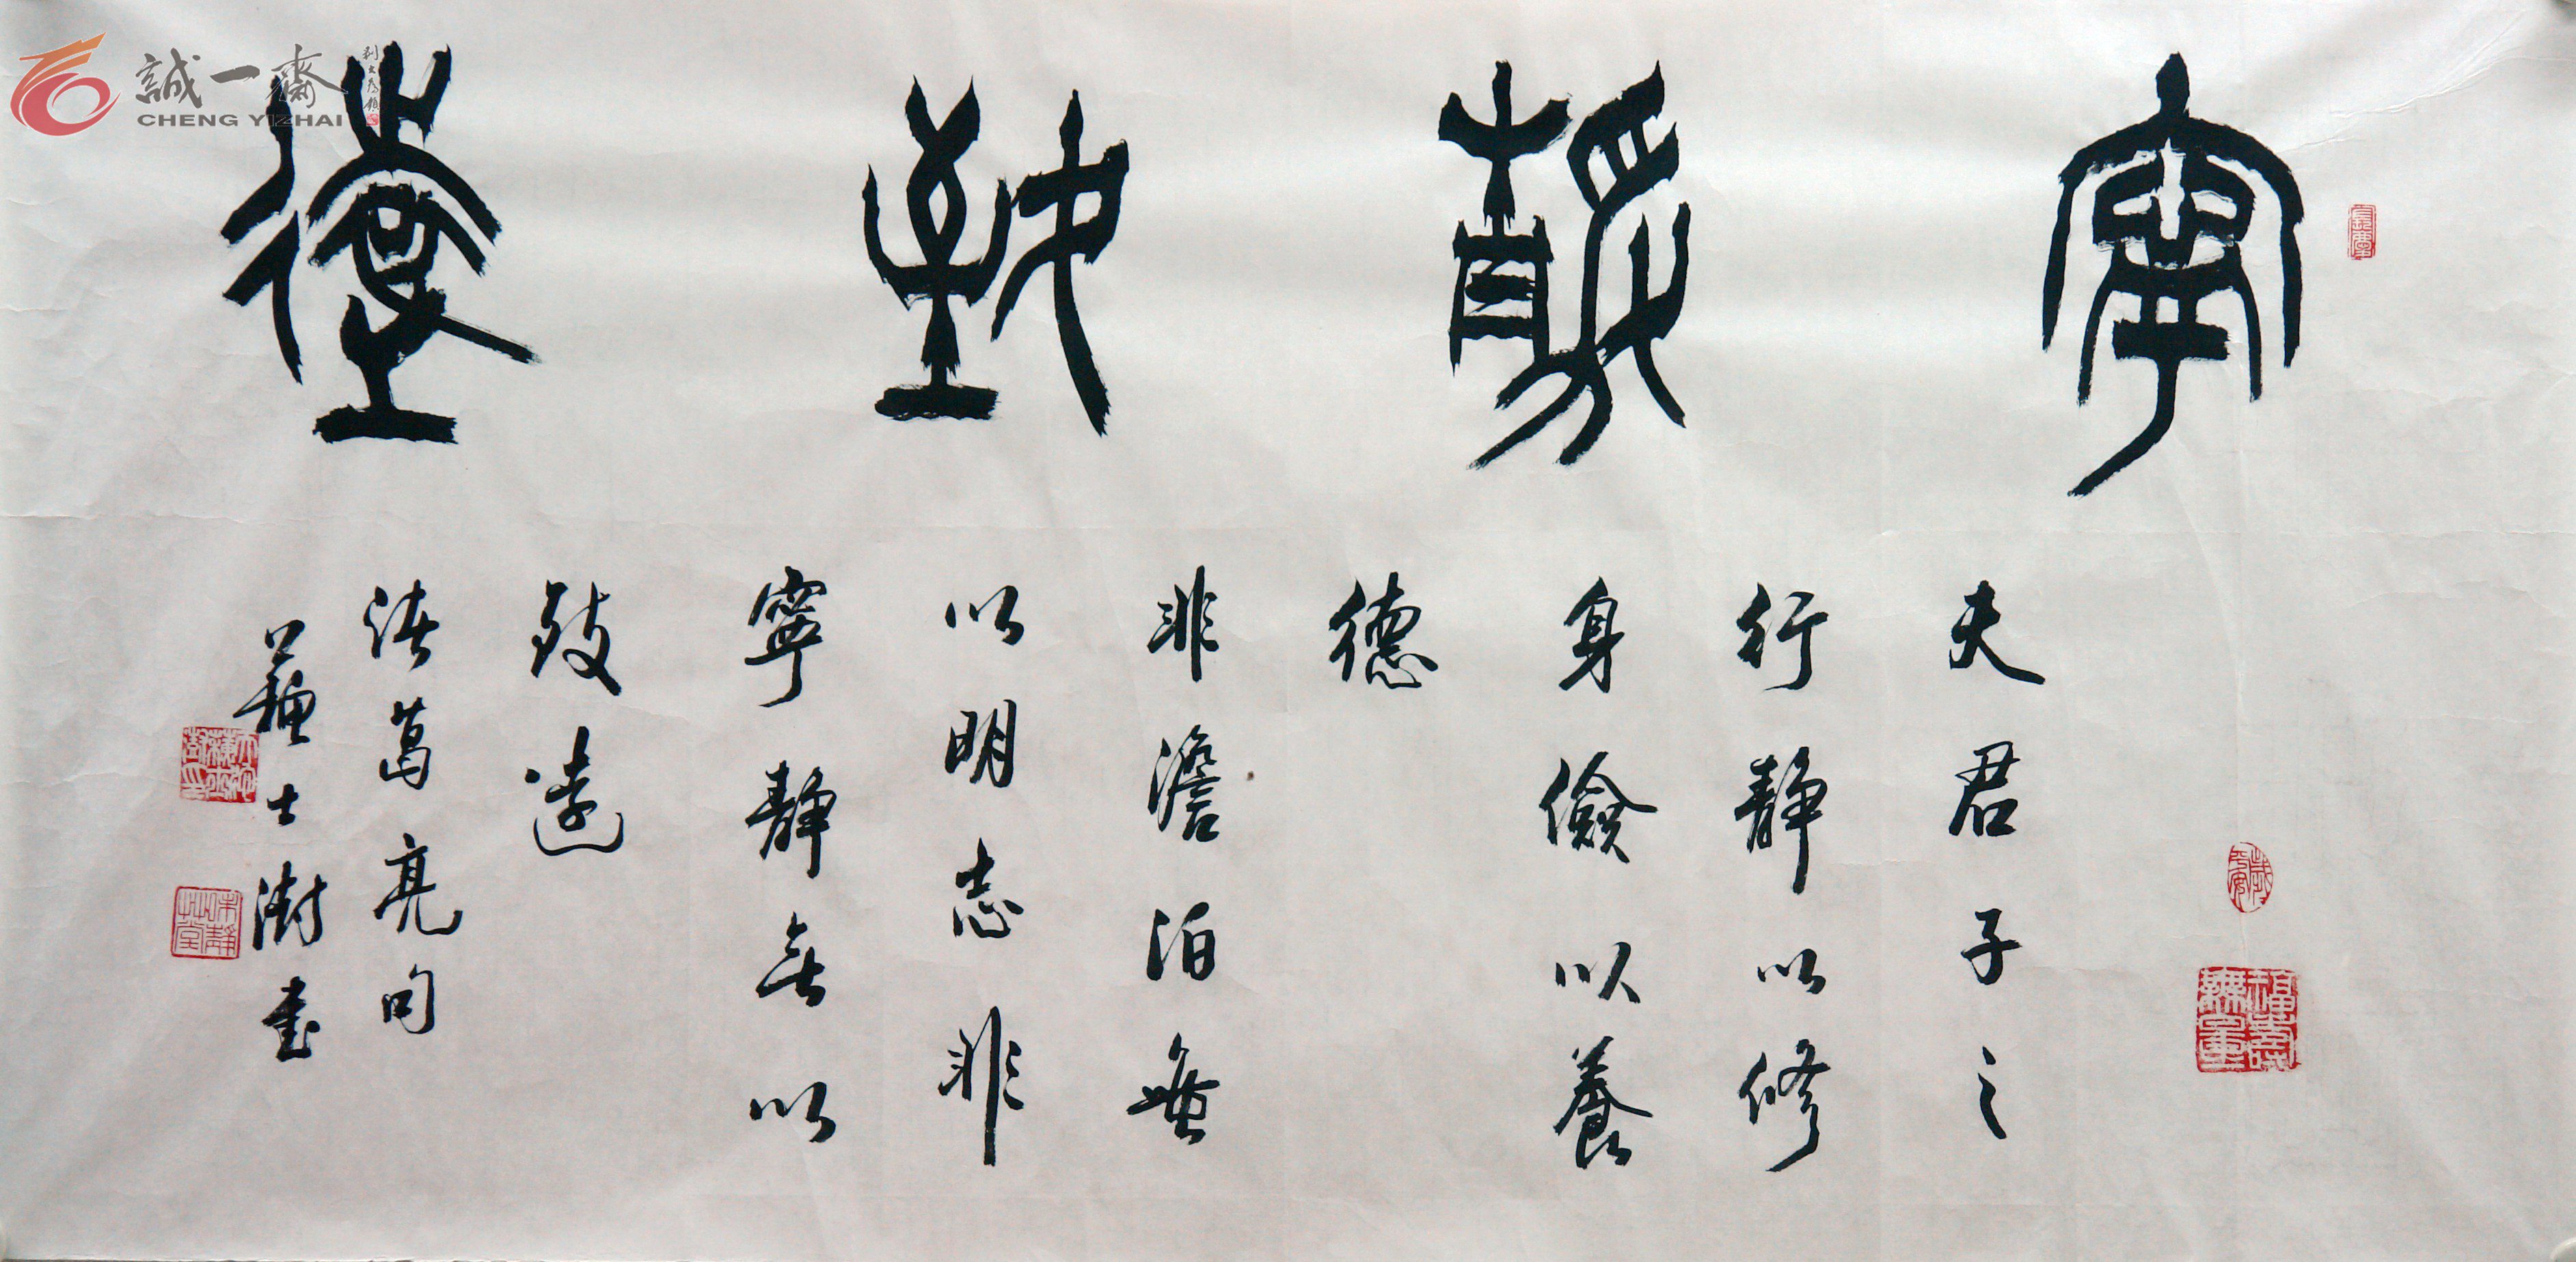 寧靜致遠
夫君子之
行靜以修
身儉以養
德
非澹泊無
以明志非
寧靜無以
致遠
諸葛亮句
蘇士澍書
誠一齋
CHENG YIZHAI